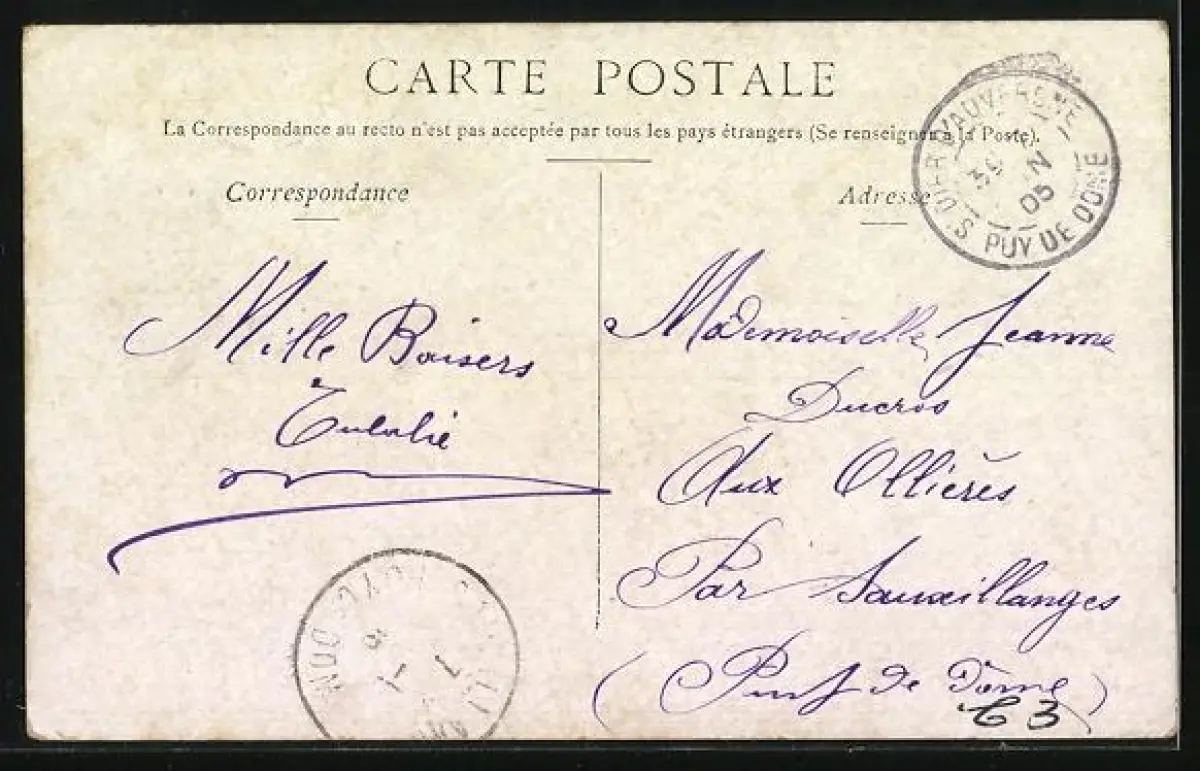 CARTE POSTALE
La Correspondance au recto n'est pas acceptée par tous les pays étrangers (Se renseigner à la Poste).
Correspondance
Adresse
Mille Baisers
Eulalie
Mademoiselle Jeanne
Ducros
Aux Ollières
Par Sauxillanges
(Puy de Dôme)
C 3
D'AUVERGNE
05
PUY DE DOME